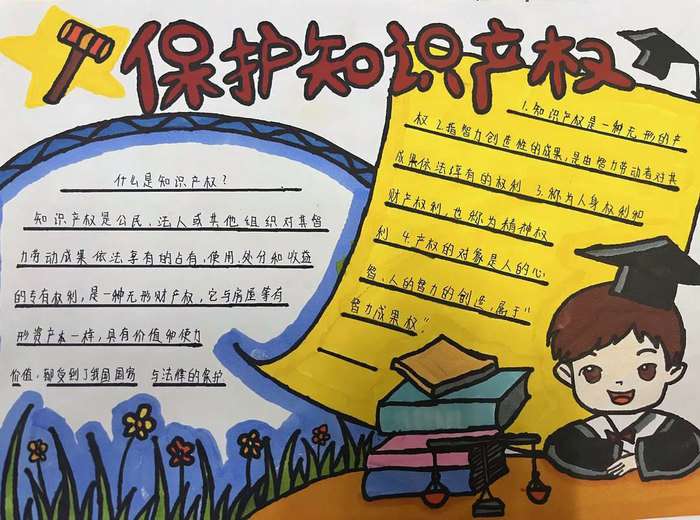 保护知识产权
什么是知识产权？
知识产权是公民、法人或其他组织对其智
力劳动成果依法享有的占有、使用、处分和收益
的专有权利，是一种无形财产权，它与房屋等有
形资产本一样，具有价值和使力
价值，都受到了我国国家 与法律的保护
1.知识产权是一种无形的产
权 2.指智力创造性的成果，是由智力劳动者对其
成果依法享有的权利 3.称为人身权利和
财产权利，也称为精神权
利 4.产权的对象是人的心
智、人的智力的创造，属于“
智力成果权”